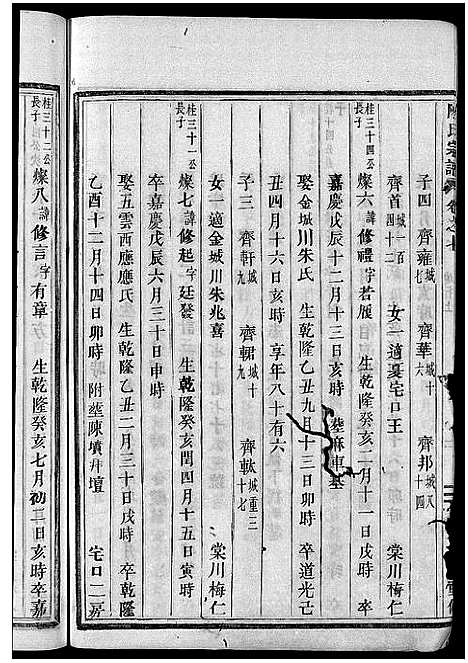 陳氏宗譜 卷之七
子四 齊雍城十九 齊華城十六 齊邦城八十四
齊首城一百四 女一適憂宅口王 棠川梅仁
桂三十四公長子 燦六諱修禮字若履 生乾隆癸亥二月十一日亥時 卒
嘉慶戊辰十二月十三日亥時 塟麻車基
娶金城川朱氏 生乾隆乙丑九月十三日卯時 卒道光己
丑四月十六日亥時 享年八十有六
子三 齊軒城九 齊輑城十九 齊軟城重三十七
女一適金城川朱兆喜 棠川梅仁
桂三十一公長子 燦七諱修起字廷發 生乾隆癸亥閏四月十五日寅時
卒嘉慶戊辰六月三十日申時
娶五雲西應應氏 生乾隆乙丑二月三十日戌時 卒乾隆
乙酉十二月十四日卯時 附塟陳墳井壇 宅口二房
桂三十二公長子 燦八諱修言字有章 生乾隆癸亥七月初三日亥時卒嘉